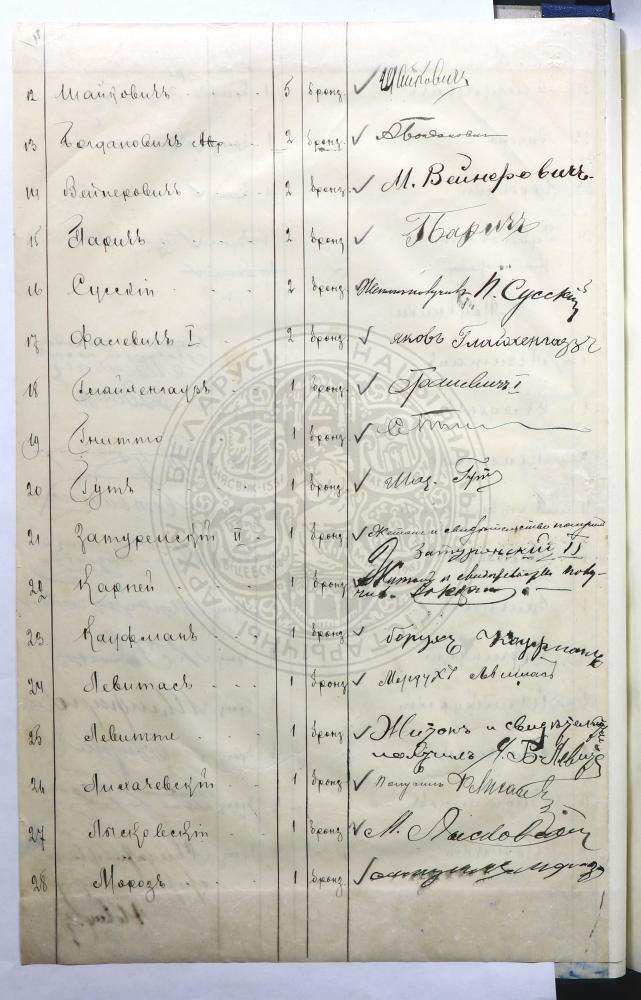 12 Шайковичъ 5 бронз. ✓ Шайковичъ
13 Богдановичъ 2 бронз. ✓ А Богданович
14 Вейнеровичъ 2 бронз. ✓ М. Вейнеровичъ.
15 Паричъ 2 бронз. ✓ Паричъ
16 Сусскій 2 бронз. П. Сусскій
17 Фалевичъ I 2 бронз. ✓ Яковъ Глайхенгаузъ
18 Глайхенгаузъ 1 бронз. ✓ I
19 Гнитто 1 бронз. ✓
20 Гутъ 1 бронз. ✓ Гутъ
21 Затуренскій II 1 бронз. ✓ Жетонъ и свидѣтельство получилъ
Затуренскій II
22 Карпей 1 бронз. ✓ Жетонъ и свидѣтельство полу-
чилъ.
23 Кауфманъ 1 бронз. ✓ Борухъ Кауфманъ
24 Левитасъ 1 бронз. ✓ Мордухъ Левитасъ
25 Левитте 1 бронз. ✓ Жетонъ и свидѣтельство
получилъ
26 Лихачевскій 1 бронз. ✓ Получилъ
27 Лысковскій 1 бронз. ✓ М. Лысковскій
28 Морозъ 1 бронз. ✓ Морозъ